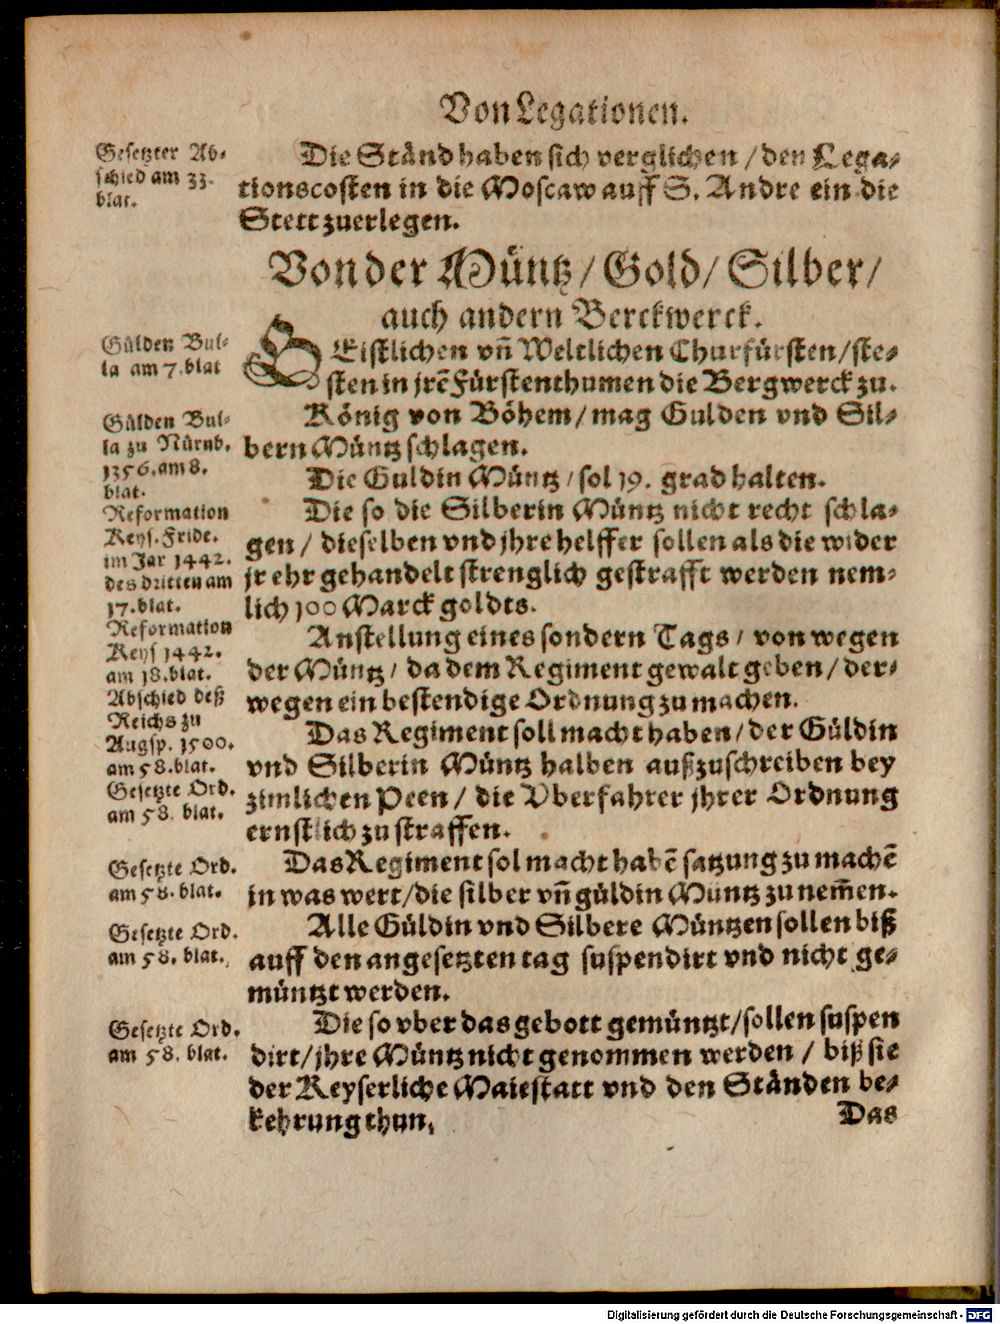 Von Legationen.
Gesetzter Ab-
schied am 33.
blat.
Die Ständ haben sich verglichen / den Lega-
tionscosten in die Moscaw auff S. Andre ein die
Stett zuerlegen.
Von der Müntz / Gold / Silber /
auch andern Berckwerck.
Gülden Bul-
la am 7. blat
GEistlichen vñ Weltlichen Churfürsten / ste-
sten in jrẽ Fürstenthumen die Bergwerck zu.
Gülden Bul-
la zu Nürnb.
1356. am 8.
blat.
König von Böhem / mag Gulden vnd Sil-
bern Müntz schlagen.
Die Guldin Müntz / sol 19. grad halten.
Reformation
Keys. Fride.
im Jar 1442.
des dritten am
17. blat.
Die so die Silberin Müntz nicht recht schla-
gen / dieselben vnd jhre helffer sollen als die wider
jr ehr gehandelt strenglich gestrafft werden nem-
lich 100 Marck goldts.
Reformation
Keys 1442.
am 18. blat.
Anstellung eines sondern Tags / von wegen
der Müntz / da dem Regiment gewalt geben / der-
wegen ein bestendige Ordnung zu machen.
Abschied deß
Reichs zu
Augsp. 1500.
am 58. blat.
Das Regiment soll macht haben / der Güldin
vnd Silberin Müntz halben außzuschreiben bey
zimlichen Peen / die Vberfahrer jhrer Ordnung
ernstlich zu straffen.
Gesetzte Ord.
am 58. blat.
Gesetzte Ord.
am 58. blat.
Das Regiment sol macht habẽ satzung zu machẽ
in was wert / die silber vñ güldin Muntz zu nem̃en.
Gesetzte Ord.
am 58. blat.
Alle Güldin vnd Silbere Müntzen sollen biß
auff den angesetzten tag suspendirt vnd nicht ge-
müntzt werden.
Gesetzte Ord.
am 58. blat.
Die so vber das gebott gemüntzt / sollen suspen
dirt / jhre Müntz nicht genommen werden / biß sie
der Keyserliche Maiestatt vnd den Ständen be-
kehrung thun.
Das
Digitalisierung gefördert durch die Deutsche Forschungsgemeinschaft - DFG